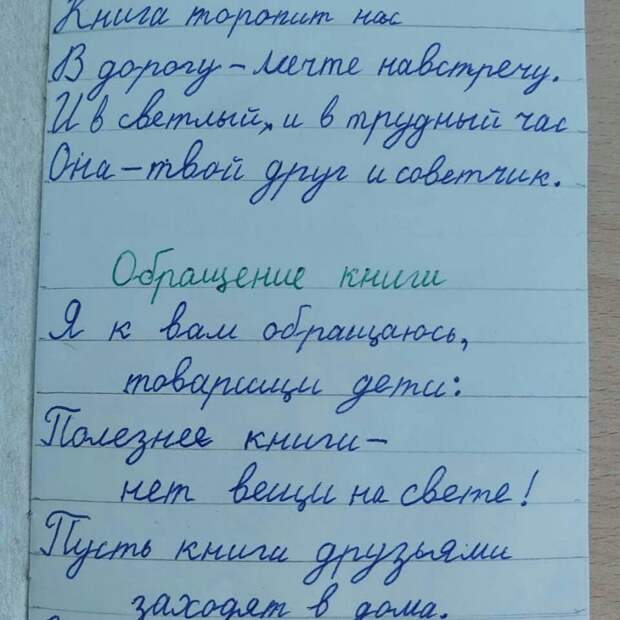 Книга торопит нас
В дорогу – мечте навстречу.
И в светлый, и в трудный час
Она – твой друг и советчик.
Обращение книги
Я к вам обращаюсь,
товарищи дети:
Полезнее книги –
нет вещи на свете!
Пусть книги друзьями
заходят в дома.